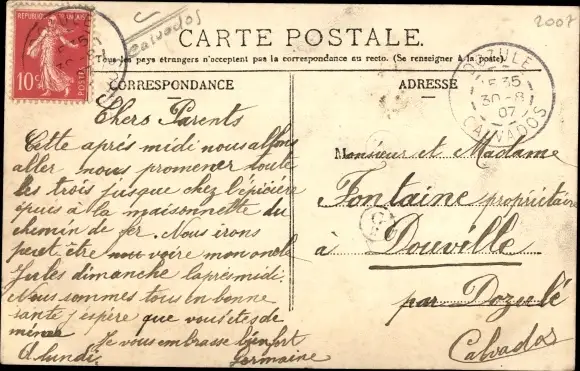 2007
Calvados
REPUBLIQUE FRANÇAISE
10c
POSTES
CARTE POSTALE.
Tous les pays étrangers n'acceptent pas la correspondance au recto. (Se renseigner à la poste).
CORRESPONDANCE
Chers Parents
Cette après midi nous allons
aller nous promener toute
les trois jusque chez l'épicière
puis à la maisonnette du
chemin de fer. Nous irons
peut être voire mon oncle
Jules dimanche laprès midi.
Nous sommes tous en bonne
santé j'espère que vous êtes de
même
Je vous embrasse bien fort
A lundi. Germaine
ADRESSE
DOZULE
5 35
30 -8
07
CALVADOS
Monsieur et Madame
Fontaine propriétaire
à Douville
par Dozulé
Calvados